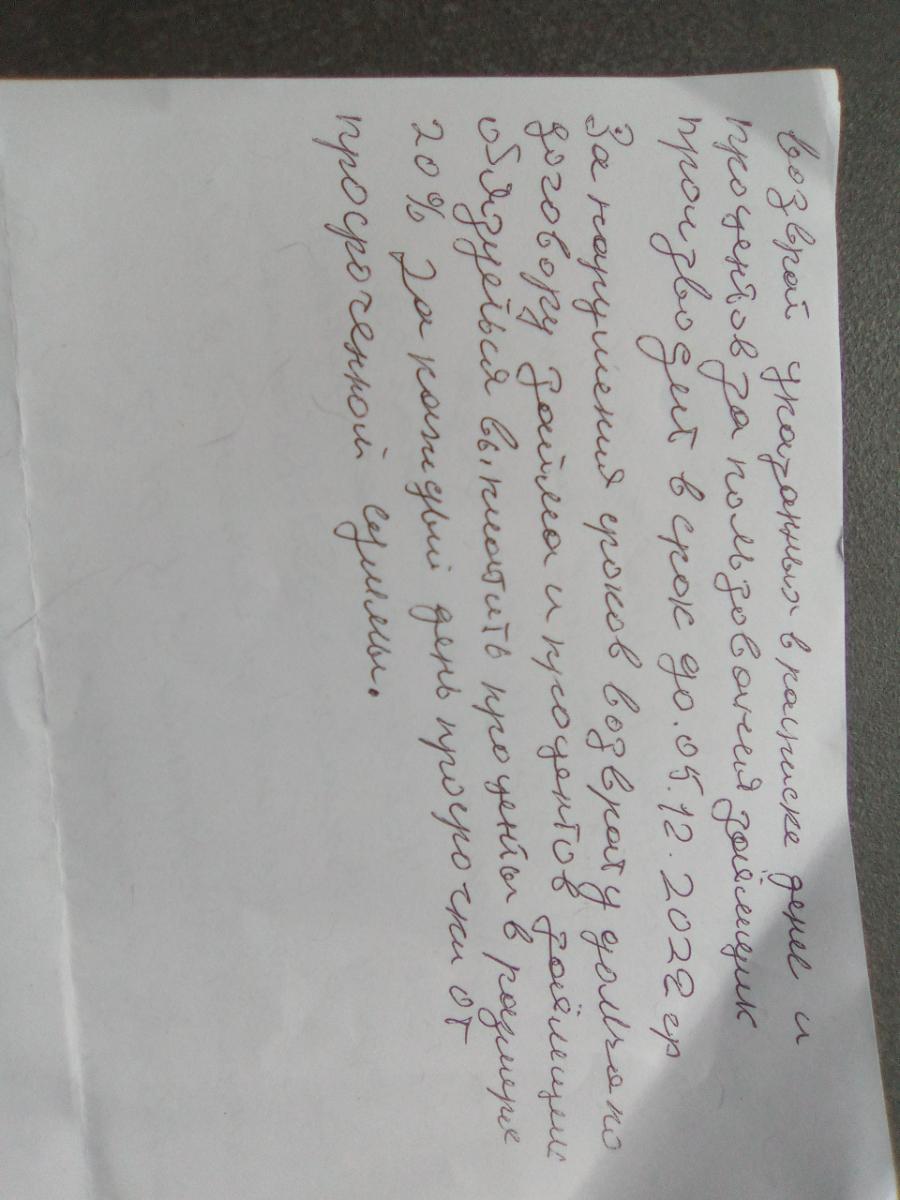 возврат указанных в расписке денег и
процентов за пользования займщик
производит в срок до. 05.12.2022 гр
За нарушения сроков возврату долга по
договору займа и процентов займщик
обязуеться выплатить проценты в размере
20% за каждый день просрочки от
просроченной суммы.